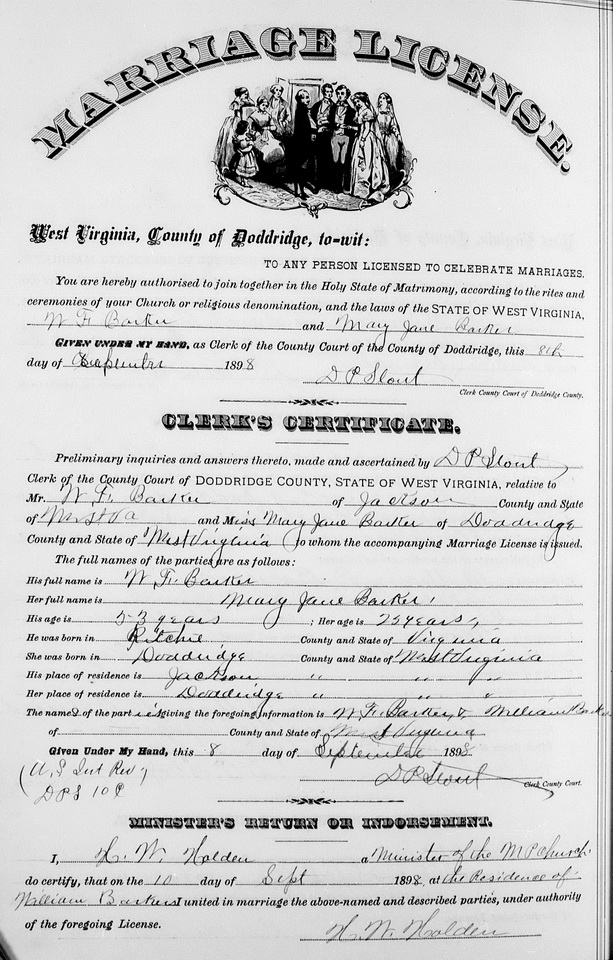 MARRIAGE LICENSE.
West Virginia, County of Doddridge, to-wit:
TO ANY PERSON LICENSED TO CELEBRATE MARRIAGES.
You are hereby authorised to join together in the Holy State of Matrimony, according to the rites and
ceremonies of your Church or religious denomination, and the laws of the STATE OF WEST VIRGINIA,
W F Barker and Mary Jane Barker
GIVEN UNDER MY HAND, as Clerk of the County Court of the County of Doddridge, this 8th
day of September 1898
D P Stout
Clerk County Court of Doddridge County.
CLERK'S CERTIFICATE.
Preliminary inquiries and answers thereto, made and ascertained by D P Stout
Clerk of the County Court of DODDRIDGE COUNTY, STATE OF WEST VIRGINIA, relative to
Mr. W. F. Barker of Jackson County and State
of West Va and Miss Mary Jane Barker of Doddridge
County and State of West Virginia to whom the accompanying Marriage License is issued.
The full names of the parties are as follows:
His full name is W F. Barker
Her full name is Mary Jane Barker
His age is 53 years ; Her age is 25 years,
He was born in Ritchie County and State of Virginia
She was born in Doddridge County and State of West Virginia
His place of residence is Jackson " " "
Her place of residence is Doddridge " " "
The names of the parties giving the foregoing information is W. F. Barker & William Barker
of County and State of West Virginia
Given Under My Hand, this 8 day of September 1898
(U. S Int Rev)
D P Stout Clerk County Court.
DPS 10¢
MINISTER'S RETURN OR INDORSEMENT.
I, H. W. Holden a Minister of the M P Church
do certify, that on the 10 day of Sept 1898, at the Residence of
William Barkers I united in marriage the above-named and described parties, under authority
of the foregoing License.
H. W. Holden